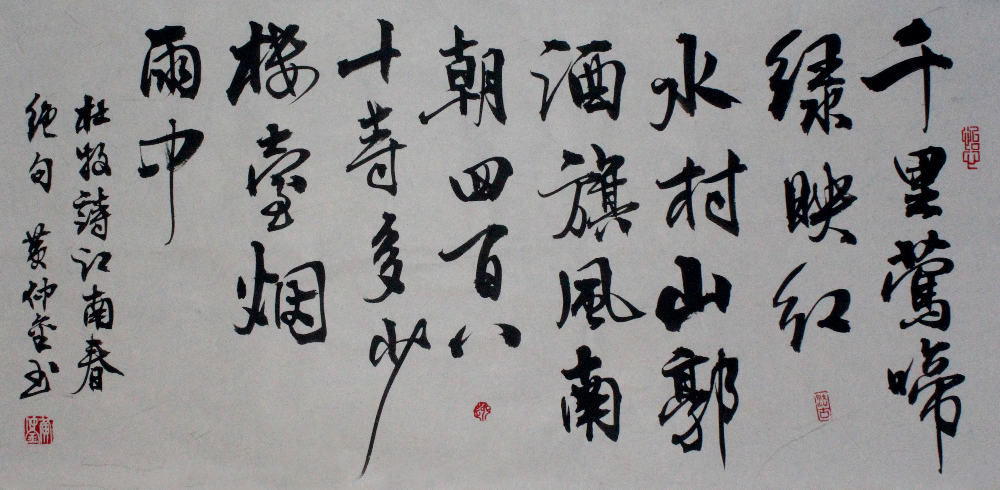 千里莺啼
绿映红
水村山郭
酒旗風南
朝四百八
十寺多少
楼臺烟
雨中
杜牧詩江南春
绝句 黄仲金书